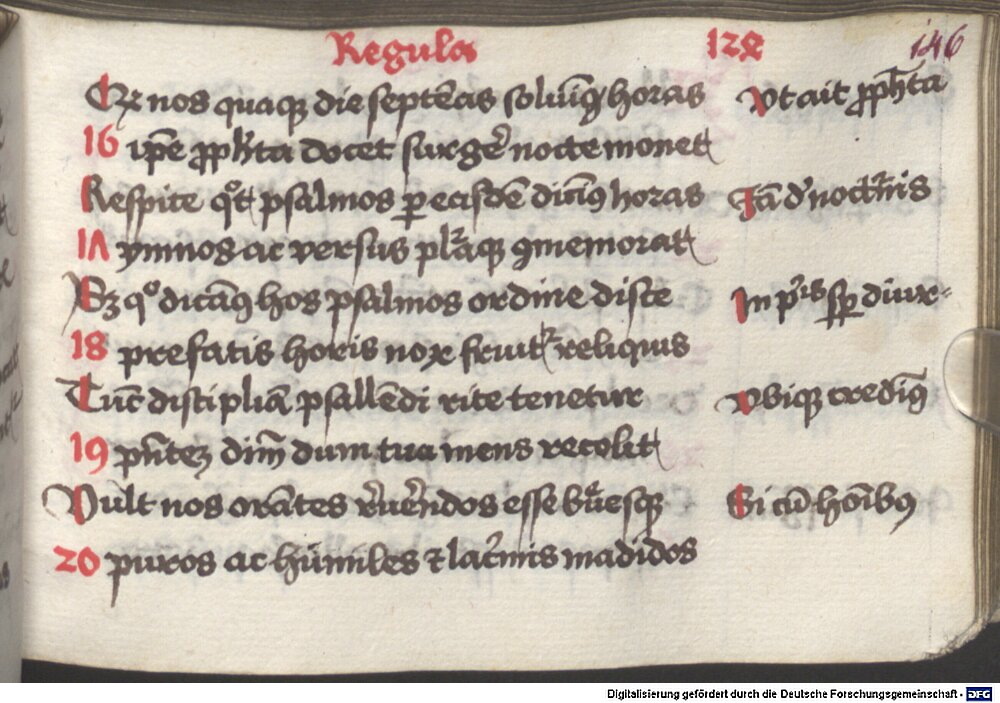 Regula 128 146
nos quaque die septēas soluīꝰ horas Vt ait ꝓph̄ta
16 ip̄e ꝓph̄ta docet surgē nocte monet
Respice qͦt psalmos ꝑ easdē dicīꝰ horas Itā d' noctr̄nis
17 ymnos ac versus plͣaqꝫ ꝯmemorat
Et qͦ dicāꝰ hos psalmos ordine disce In pͥis sꝑ diur-
18 prefatis horis nox fruitͬ reliquis
Tūc discipliā psallēdi rite tenetur vbiqꝫ credīꝰ
19 pn̄teꝫ dn̄m dum tua mens recolit
Vult nos orātes reuerēdos esse breuesqꝫ Si cū hoībꝰ
20 puros ac humiles ⁊ lacͥmis madidos
Digitalisierung gefördert durch die Deutsche Forschungsgemeinschaft - DFG